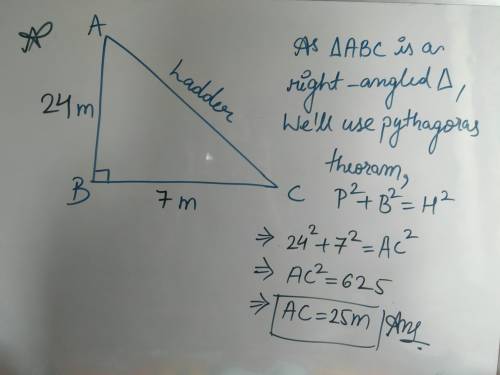 A
24m
Ladder
B
7 m
C
As ΔABC is a
right-angled Δ,
We'll use pythagoras
theoram,
P²+B²=H²
⇒ 24²+7²=AC²
⇒ AC²=625
⇒ AC=25m Ans